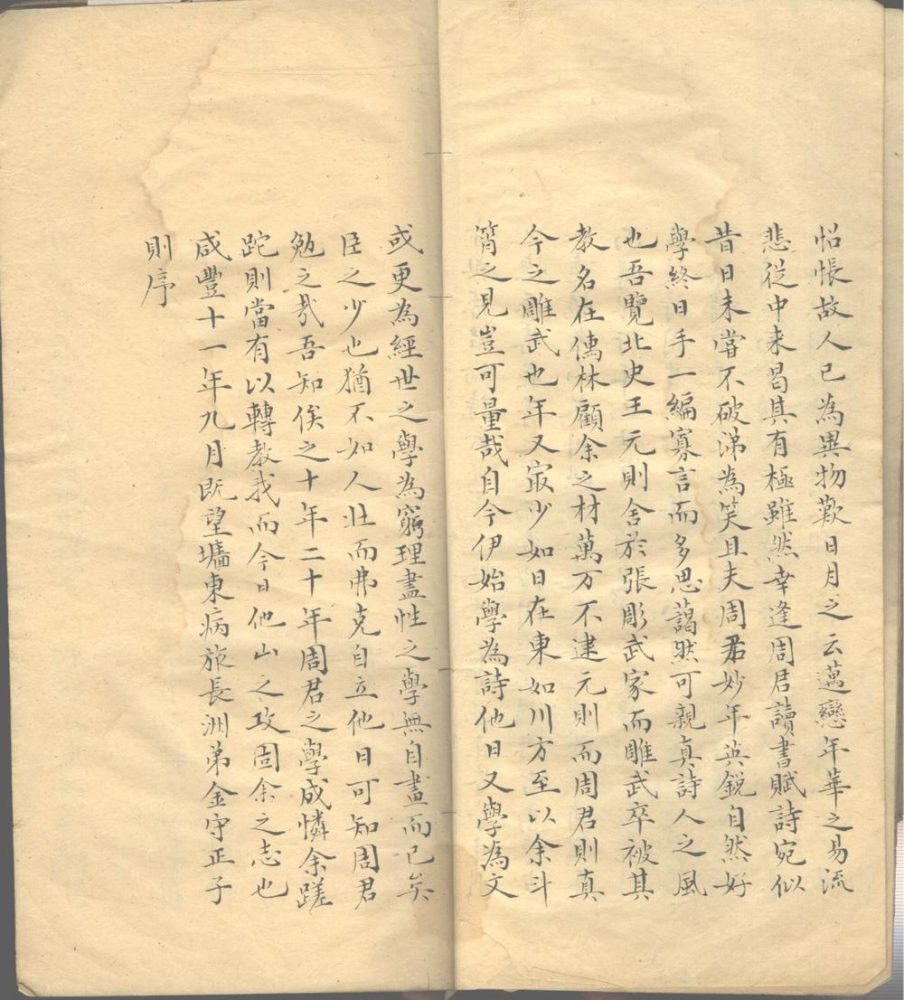 怊悵故人已為異物歎日月之云邁戀年華之易流
悲從中来曷其有極雖然幸逢周君讀書賦詩宛似
昔日未嘗不破涕為笑且夫周君妙年英銳自然好
學終日手一編寡言而多思藹然可親真詩人之風
也吾覽北史王元則舍於張彫武家而雕武卒被其
教名在儒林顧余之材萬万不逮元則而周君則真
今之雕武也年又冣少如日在東如川方至以余斗
筲之見豈可量哉自今伊始學為詩他日又學為文
或更為經世之學為窮理盡性之學無自畫而已矣
臣之少也猶不如人壯而弗克自立他日可知周君
勉之哉吾知俟之十年二十年周君之學成憐余蹉
跎則當有以轉教我而今日他山之攻固余之志也
咸豐十一年九月既望墻東病旅長洲弟金守正子
則序